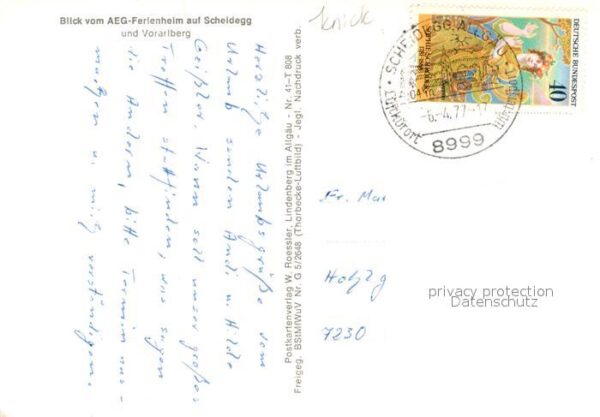 Blick vom AEG-Ferienheim auf Scheidegg
und Vorarlberg
Knick
Herzliche Urlaubsgrüße vom
Urlaub senden Andi u. Hilde
Geißler. Wann soll unser großes
Treffen stattfinden, was sagen
die Anderen, bitte Termin aus-
machen u. mich verständigen.
Postkartenverlag W. Roessler, Lindenberg im Allgäu - Nr. 41-T 808
Freigeg. BStMfWuV Nr. G 5/2648 (Thorbecke-Luftbild) - Jegl. Nachdruck verb.
SCHEIDEGG ALLGÄU
-6.-4.77-17
Kurort
8999
DEUTSCHE BUNDESPOST
40
Fr. Mar
Holzg
7230
privacy protection
Datenschutz